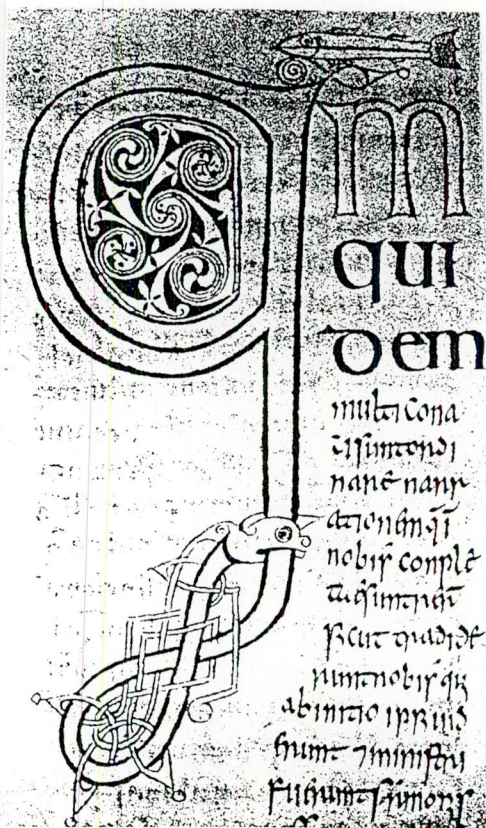 qm
qui
dem
multi cona
ti sunt ordi
nare narr
ationem q̄ ī
nobis conple
sunt
sicut tradide
runt nobis q
ab initio ipsi uid
erunt ⁊ ministri
fuerunt sermonis